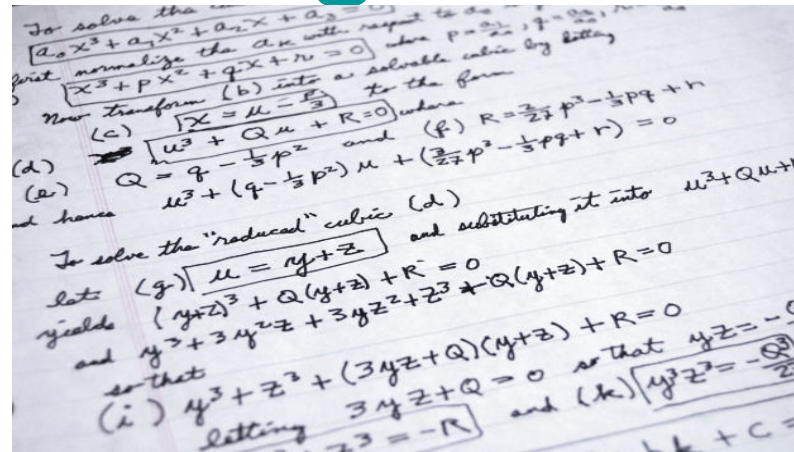 To solve the
a₀x³ + a₁x² + a₂x + a₃ = 0
first normalize the aₖ with respect to a₀
x³ + px² + qx + r = 0 where p = a₁/a₀, q =
Now transform (b) into a solvable cubic by letting
(c) x = u - p/3 to the form
(d) u³ + Qu + R = 0 where
(e) Q = q - 1/3 p² and (f) R = 2/27 p³ - 1/3 pq + r
and hence u³ + (q - 1/3 p²) u + (2/27 p³ - 1/3 pq + r) = 0
To solve the "reduced" cubic (d)
let (g) u = y + z and substituting it into u³ + Qu +
yields (y+z)³ + Q(y+z) + R = 0
and y³ + 3y²z + 3yz² + z³ + Q(y+z) + R = 0
so that
(i) y³ + z³ + (3yz + Q)(y+z) + R = 0
letting 3yz + Q = 0 so that yz = -
z³ = -R and (k) y³z³ = -Q³/2
+ C =